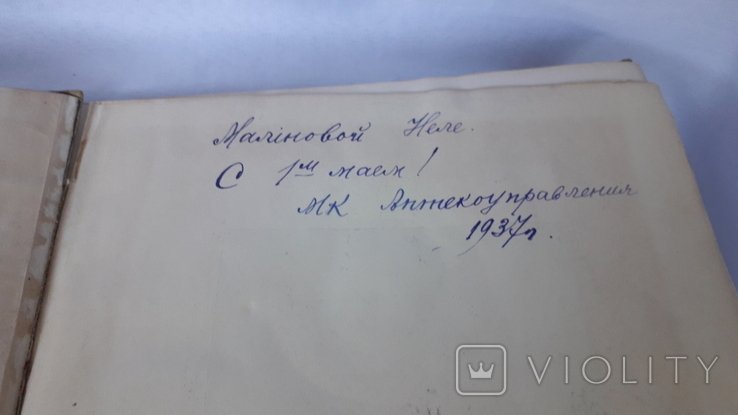 Маліновой Неле.
С 1ᴹ маем!
МК Аптекоуправления
1937г.
VIOLITY